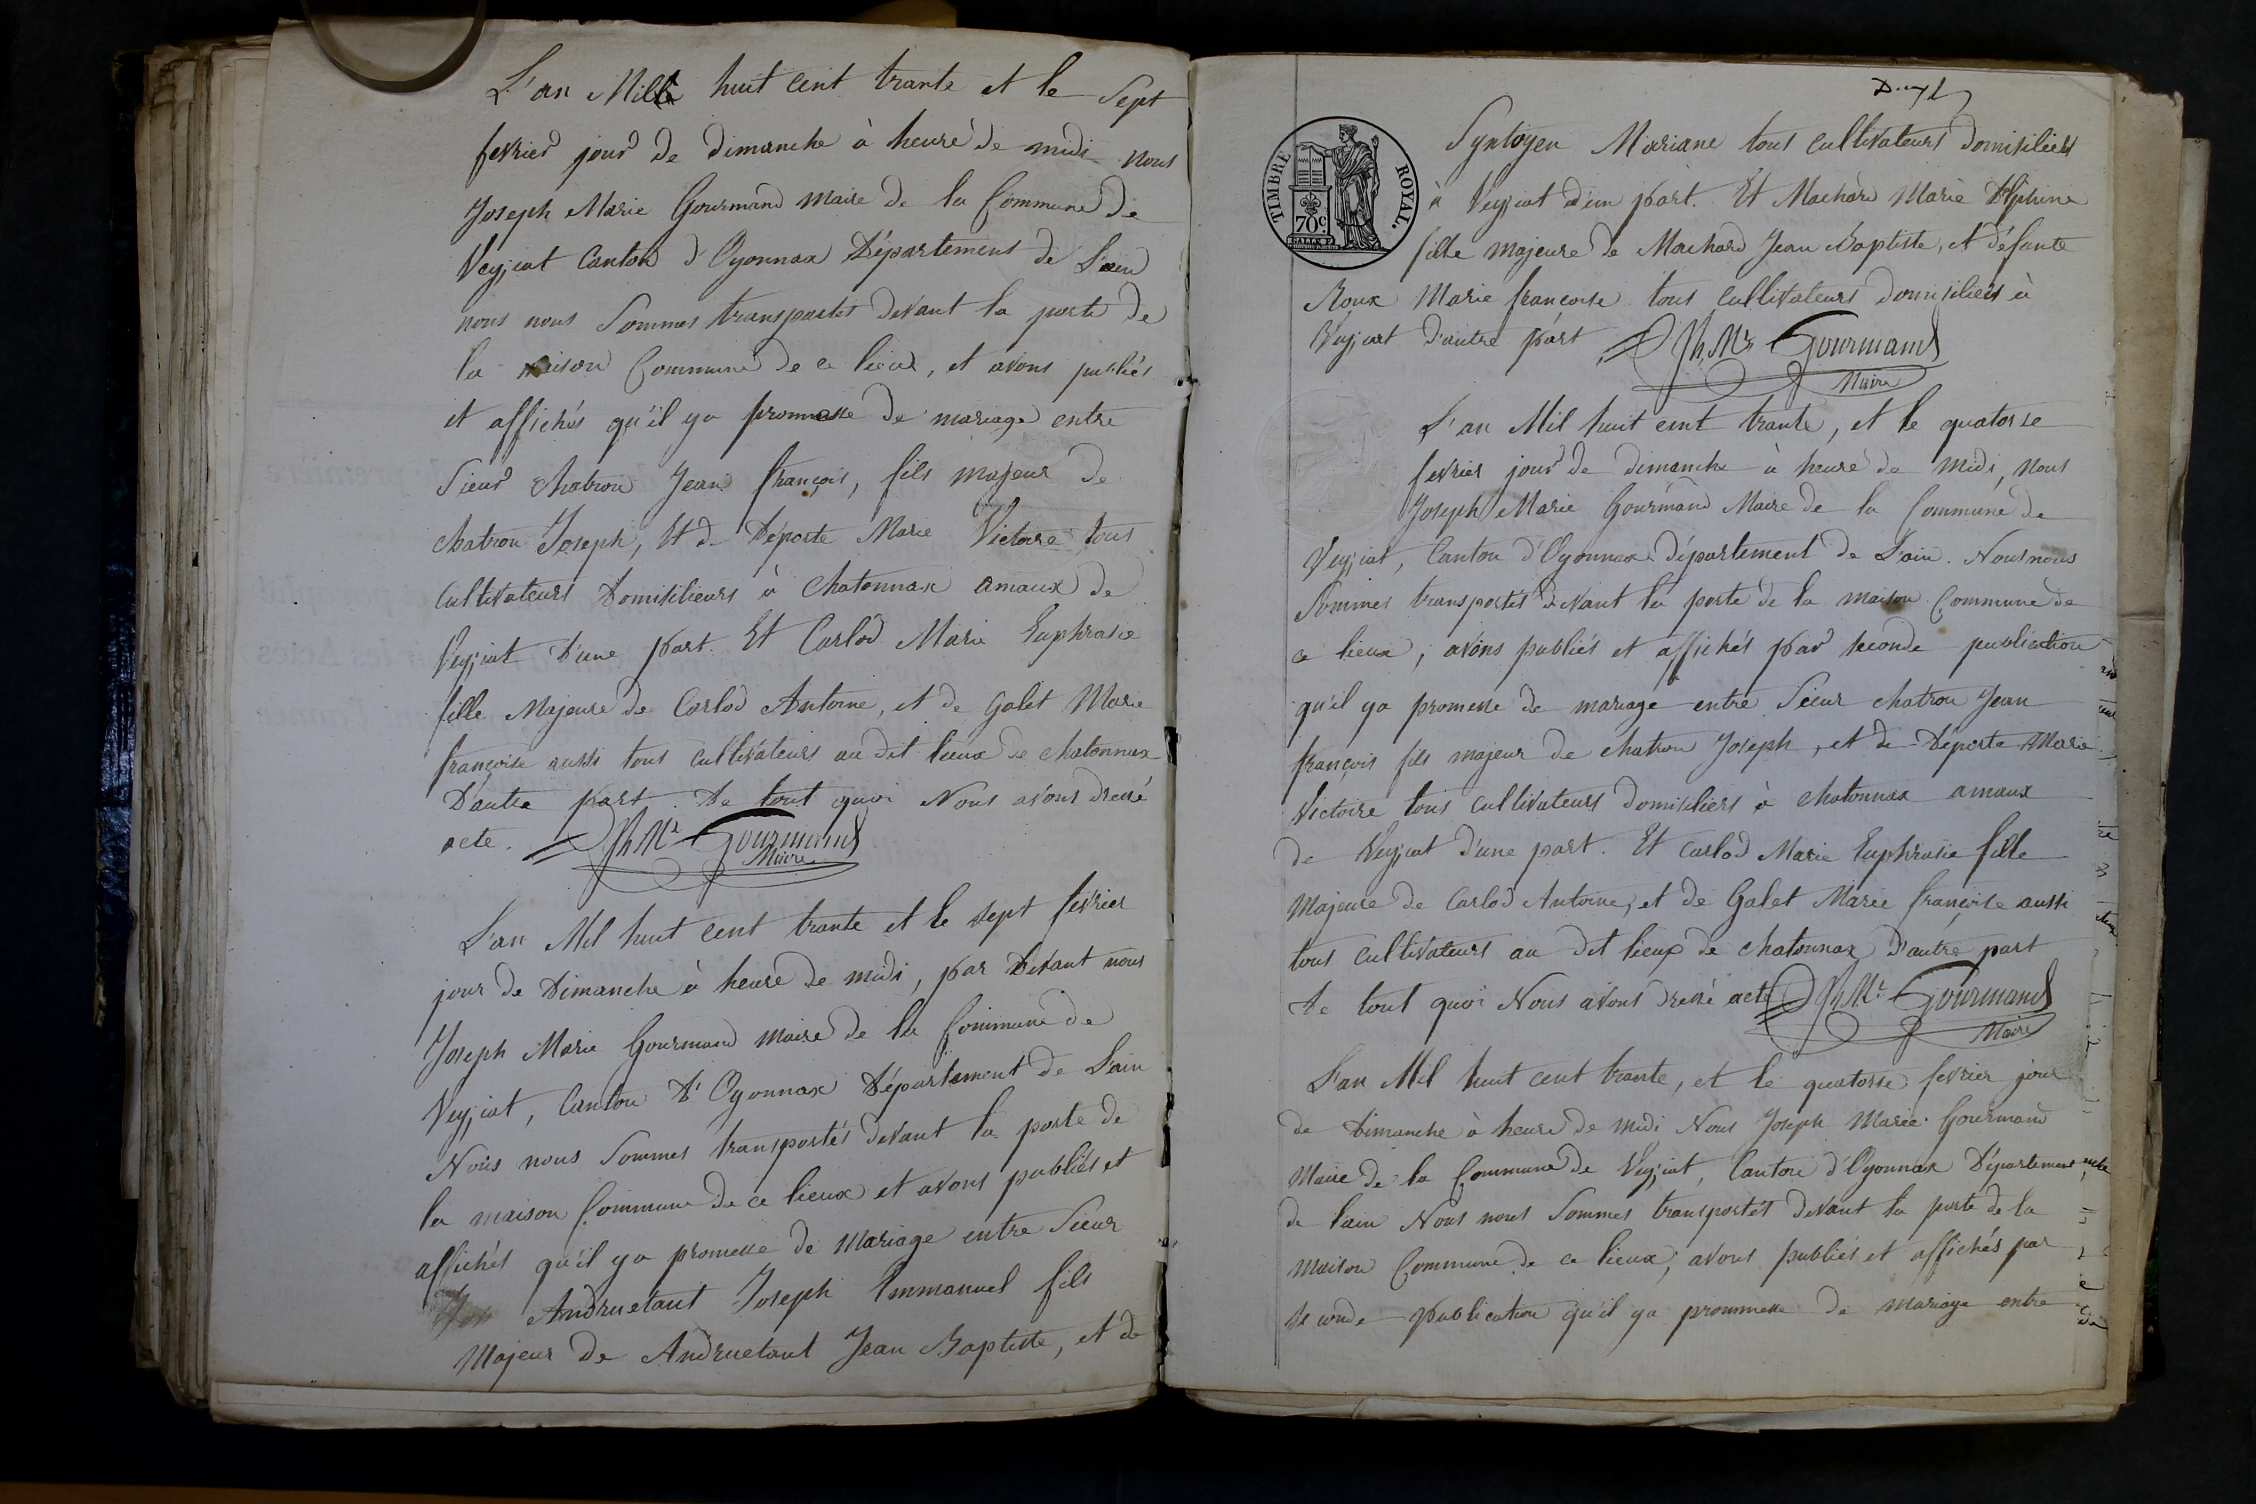 L'an Mille huit cent trante et le Sept
fevrier jour de dimanche à heure de midi nous
Joseph Marie Gourmand maire de la Commune de
Veyziat Canton d'Oyonnax Département de L'ain
nous nous Sommes transportés devant la porte de
la maison Commune de ce lieux, et avons publiés
et affichés qu'il ya promesse de mariage entre
Sieur chatron Jean françois, fils majeur de
chatron Joseph, Et de Déporte Marie Victoire tous
cultivateurs Domisiliers à Chatonnax amaux de
Veyziat D'une part. Et Carlod Marie Euphrasie
fille Majeure de Carlod Antoine, et de Galet Marie
françoise aussi tous cultivateurs au dit lieux de chatonnax
D'autre part. De tout quoi Nous avons dressé
acte. Jh Mie Gourmand
Maire
L'an Mil huit cent trante et le sept fevrier
jour de Dimanche à heure de midi, par Devant nous
Joseph Marie Gourmand maire de la Commune de
Veyziat, Canton D'Oyonnax Département de L'ain
Nous nous Sommes transportés devant la porte de
la maison Commune de ce lieux et avons publiés et
affichés qu'il ya promesse de Mariage entre Sieur
Andruetant Joseph Emmanuel fils
Majeur de Andruetant Jean Baptiste, et de
TIMBRE ROYAL.
70c
Syntoyen Mariane tous cultivateurs domisiliers
à Veyziat d'un part. Et Machard Marie Delphine
fille majeure de Machard Jean Baptiste, et défunte
Roux Marie françoise tous cultivateurs domisiliers à
Veyziat D'autre part Jh Mie Gourmand
Maire
L'an Mil huit cent trante, et le quatorse
fevrier jour de dimanche à heure de Midi, Nous
Joseph Marie Gourmand Maire de la Commune de
Veyziat, Canton d'Oyonnax département de L'ain. Nous nous
Sommes transportés devant la porte de la maison Commune de
ce lieux, avons publiés et affichés par seconde publication
qu'il ya promesse de mariage entre Sieur chatron Jean
françois fils majeur de chatron Joseph, et de Déporte Marie
Victoire tous cultivateurs domisiliers à Chatonnax amaux
de Veyziat D'une part. Et Carlod Marie Euphrasie fille
Majeure de Carlod Antoine, et de Galet Marie françoise aussi
tous cultivateurs au dit lieux de chatonnax D'autre part
De tout quoi Nous avons dressé acte Jh Mie Gourmand
Maire
L'an Mil huit cent trante, et le quatorse fevrier jour
de Dimanche à heure de midi Nous Joseph Marie Gourmand
Maire de la Commune de Veyziat, Canton d'Oyonnax Département
de l'ain Nous nous Sommes transportés devant la porte de la
maison Commune de ce lieux, avons publiés et affichés par
seconde publication qu'il ya prommesse de mariage entre